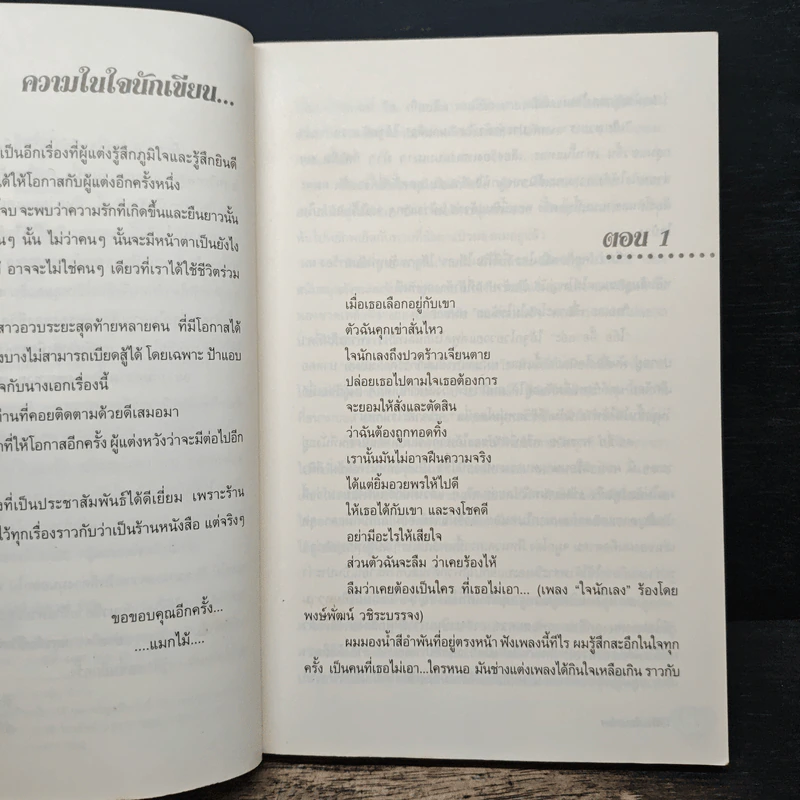 ความในใจนักเขียน...
เป็นอีกเรื่องที่ผู้แต่งรู้สึกภูมิใจและรู้สึกยินดี
ให้โอกาสกับผู้แต่งอีกครั้งหนึ่ง
จบ จะพบว่าความรักที่เกิดขึ้นและยืนยาวนั้น
นั้น ไม่ว่าคนๆ นั้นจะมีหน้าตาเป็นยังไง
อาจจะไม่ใช่คนๆ เดียวที่เราได้ใช้ชีวิตร่วม
สาวอวบระยะสุดท้ายหลายคน ที่มีโอกาสได้
บางไม่สามารถเบียดสู้ได้ โดยเฉพาะ ป้าแอบ
กับนางเอกเรื่องนี้
ที่คอยติดตามด้วยดีเสมอมา
ที่ให้โอกาสอีกครั้ง ผู้แต่งหวังว่าจะมีต่อไปอีก
ที่เป็นประชาสัมพันธ์ได้ดีเยี่ยม เพราะร้าน
ไว้ทุกเรื่องราวกับว่าเป็นร้านหนังสือ แต่จริงๆ
ขอขอบคุณอีกครั้ง...
....แมกไม้....
ตอน 1
เมื่อเธอเลือกอยู่กับเขา
ตัวฉันคุกเข่าสั่นไหว
ใจนักเลงถึงปวดร้าวเจียนตาย
ปล่อยเธอไปตามใจเธอต้องการ
จะยอมให้สั่งและตัดสิน
ว่าฉันต้องถูกทอดทิ้ง
เรานั้นมันไม่อาจฝืนความจริง
ได้แต่ยิ้มอวยพรให้ไปดี
ให้เธอได้กับเขา และจงโชคดี
อย่ามีอะไรให้เสียใจ
ส่วนตัวฉันจะลืม ว่าเคยร้องไห้
ลืมว่าเคยต้องเป็นใคร ที่เธอไม่เอา... (เพลง “ใจนักเลง” ร้องโดย
พงษ์พัฒน์ วชิระบรรจง)
ผมมองน้ำสีอำพันที่อยู่ตรงหน้า ฟังเพลงนี้ทีไร ผมรู้สึกสะอึกในใจทุก
ครั้ง เป็นคนที่เธอไม่เอา...ใครหนอ มันช่างแต่งเพลงได้กินใจเหลือเกิน ราวกับ